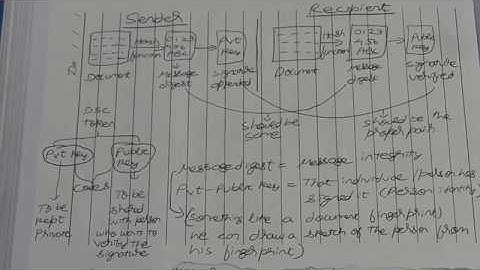 Sender
Recipient
Document
Hash
function
0123
456
ABC
Message
digest
Pvt
Key
Signature
appended
Document
Hash
function
0123
456
ABC
Message
digest
Public
Key
Signature
verified
should be
same
should be the
proper pair
DSC
Token
Pvt Key
Public
Key
Codes
To be
kept
Private
To be
shared
with person
who want to
verified the
signature
Message digest = Message integrity
Pvt-Public Key = That individual/person has
signed it (Person identity)
(something like a document fingerprint)
we can draw a sketch of the person from
his fingerprint)